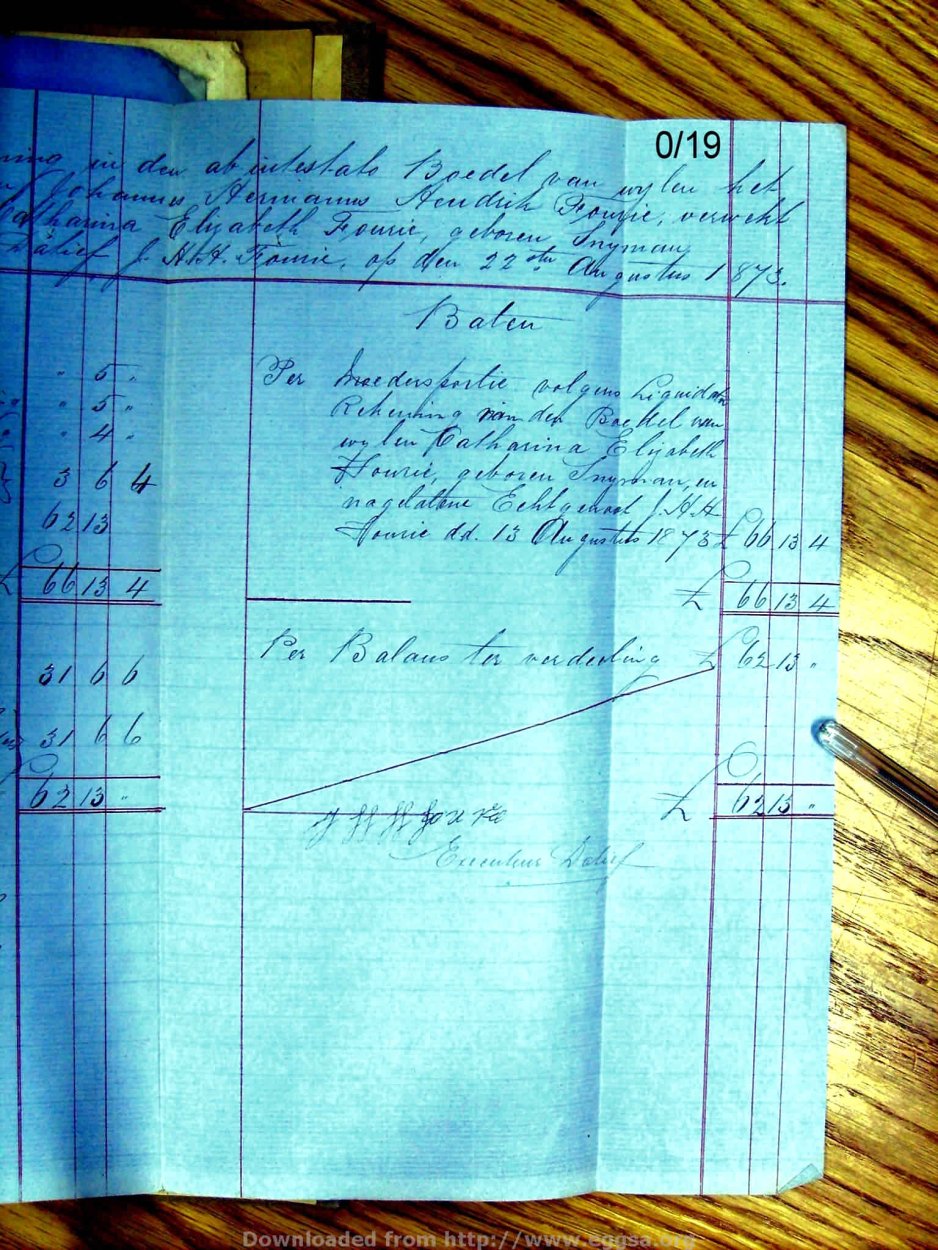 0/19
in den ab intestato Boedel van wylen het
Johannes Hermanus Hendrik Fourie, verwekt
Catharina Elizabeth Fourie, geboren Snyman,
Datief J. H. H. Fourie, op den 22sten Augustus 1873.
Baten
" 5 " Per Moedersportie volgens Liquidatie
" 5 " Rekening van den Boedel van
" 4 " wylen Catharina Elizabeth
3 6 4 Fourie, geboren Snyman, en
nagelatene Echtgenoot J. H. H.
62 13 Fourie dd. 13 Augustus 1873 £ 66 13 4
£ 66 13 4 £ 66 13 4
Per Balans ter verdeeling £ 62 13 "
31 6 6
31 6 6
62 13 " £ 62 13 "
J H H Fourie
Executeur Datief
Downloaded from http://www.eggsa.org